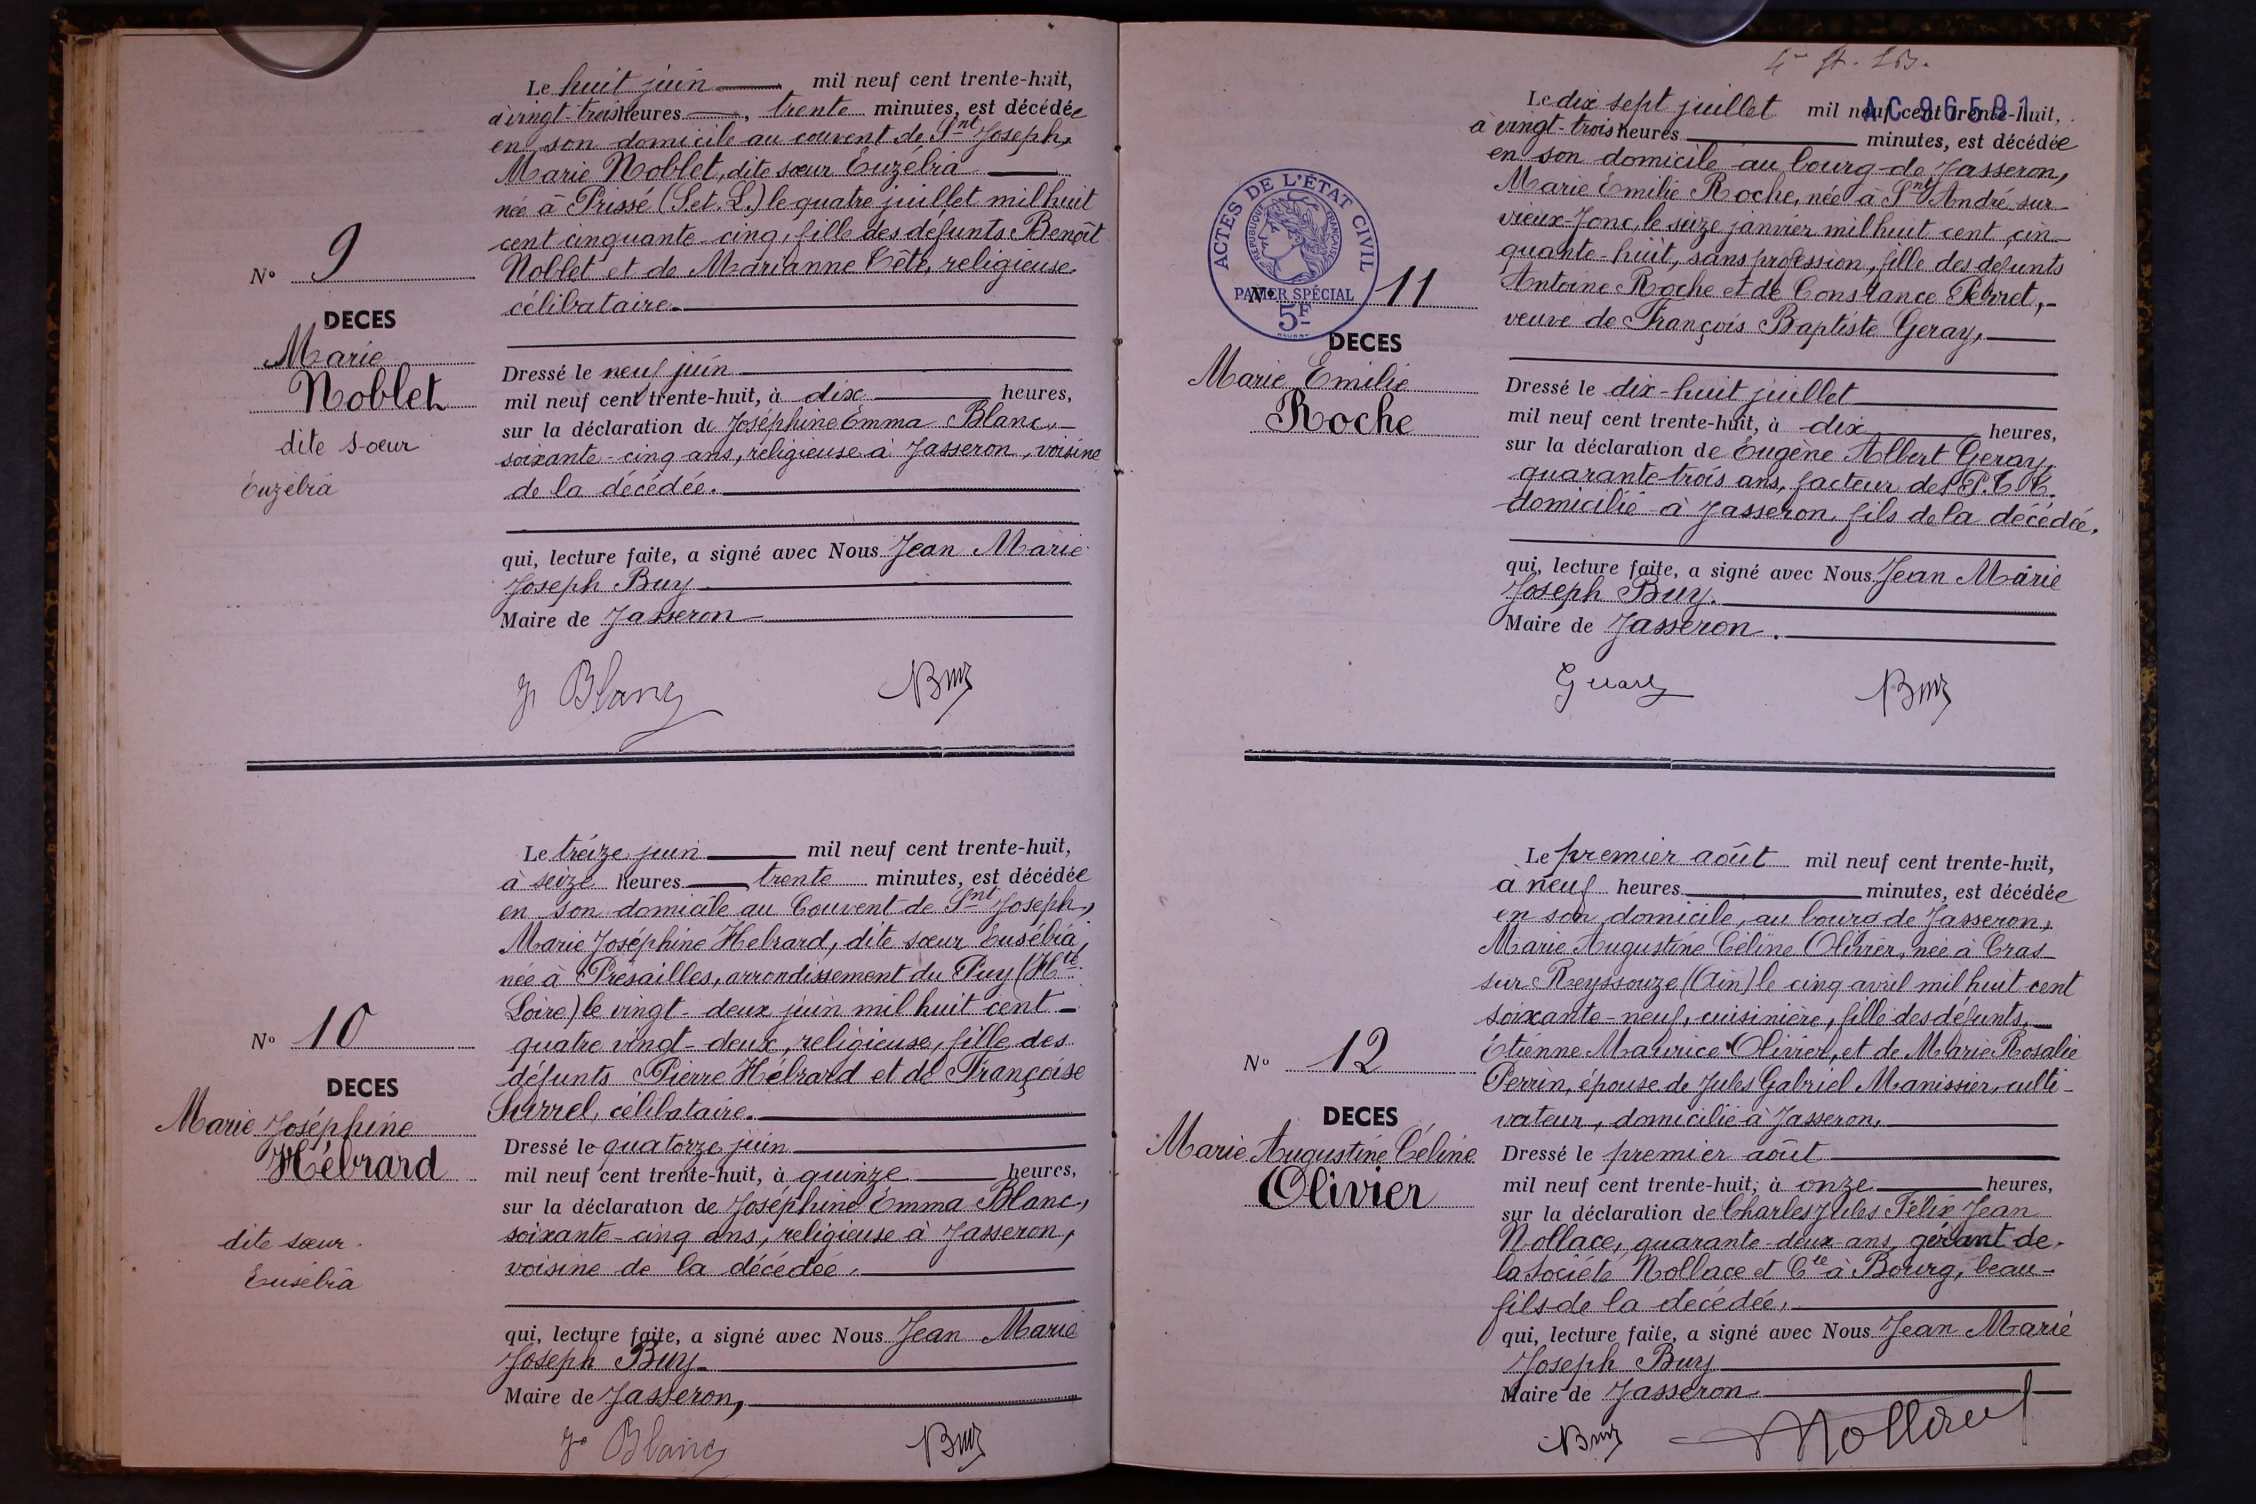 N° 9
DECES
Marie
Noblet
dite sœur
Euzébia
Le huit juin mil neuf cent trente-huit,
à vingt-trois heures, trente minutes, est décédée
en son domicile au couvent de Snt Joseph,
Marie Noblet, dite sœur Euzébia
née à Prissé (S. et. L.) le quatre juillet mil huit
cent cinquante-cinq, fille des défunts Benoît
Noblet et de Marianne Tête, religieuse
célibataire.
Dressé le neuf juin
mil neuf cent trente-huit, à dix heures,
sur la déclaration de Joséphine Emma Blanc,
soixante-cinq ans, religieuse à Jasseron, voisine
de la décédée.
qui, lecture faite, a signé avec Nous Jean Marie
Joseph Buy
Maire de Jasseron
J. Blanc Buy
N° 10
DECES
Marie Joséphine
Hébrard
dite sœur
Eusébia
Le treize juin mil neuf cent trente-huit,
à seize heures trente minutes, est décédée
en son domicile au Couvent de Snt Joseph,
Marie Joséphine Hébrard, dite sœur Eusébia,
née à Présailles, arrondissement du Puy (Hte
Loire) le vingt-deux juin mil huit cent
quatre vingt-deux, religieuse, fille des
défunts Pierre Hébrard et de Françoise
Surrel, célibataire.
Dressé le quatorze juin
mil neuf cent trente-huit, à quinze heures,
sur la déclaration de Joséphine Emma Blanc,
soixante-cinq ans, religieuse à Jasseron,
voisine de la décédée.
qui, lecture faite, a signé avec Nous Jean Marie
Joseph Buy
Maire de Jasseron,
J. Blanc Buy
AC 86581
ACTES DE L'ÉTAT CIVIL
RÉPUBLIQUE FRANÇAISE
PAPIER SPÉCIAL
5F
N° 11
DECES
Marie Emilie
Roche
Le dix sept juillet mil neuf cent trente-huit,
à vingt-trois heures minutes, est décédée
en son domicile au bourg de Jasseron,
Marie Emilie Roche, née à Snt André sur
vieux Jonc, le seize janvier mil huit cent cin-
quante-huit, sans profession, fille des défunts
Antoine Roche et de Constance Perret,
veuve de François Baptiste Geray,
Dressé le dix-huit juillet
mil neuf cent trente-huit, à dix heures,
sur la déclaration de Eugène Albert Geray,
quarante-trois ans, facteur des P.T.T.
domicilié à Jasseron, fils de la décédée,
qui, lecture faite, a signé avec Nous Jean Marie
Joseph Buy.
Maire de Jasseron.
Buy
N° 12
DECES
Marie Augustine Céline
Olivier
Le premier août mil neuf cent trente-huit,
à neuf heures minutes, est décédée
en son domicile, au bourg de Jasseron,
Marie Augustine Céline Olivier, née à Cras
sur Reyssouze (Ain) le cinq avril mil huit cent
soixante-neuf, cuisinière, fille des défunts,
Étienne Maurice Olivier, et de Marie Rosalie
Perrin, épouse de Jules Gabriel Manissier, culti-
vateur, domicilié à Jasseron,
Dressé le premier août
mil neuf cent trente-huit, à onze heures,
sur la déclaration de Charles Jules Félix Jean
Nollace, quarante-deux ans, gérant de
la Société Nollace et Cie à Bourg, beau-
fils de la décédée,
qui, lecture faite, a signé avec Nous Jean Marie
Joseph Buy
Maire de Jasseron
Buy